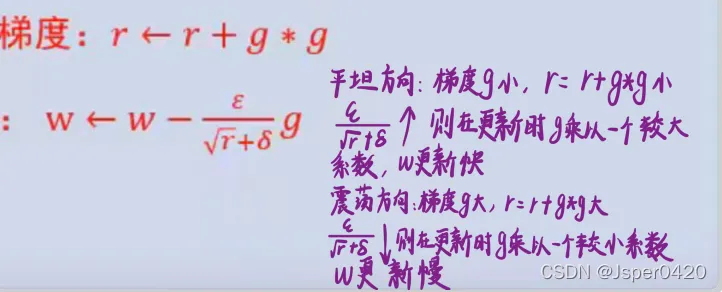 梯度：r ← r + g * g
平坦方向：梯度g小，r = r+g*g小
： w ← w − ε/(√r+δ) g
ε/(√r+δ) ↑ 则在更新时g乘以一个较大
系数，w更新快
震荡方向：梯度g大，r=r+g*g大
ε/(√r+δ) ↓ 则在更新时g乘以一个较小系数
W更新慢
CSDN @Jsper0420